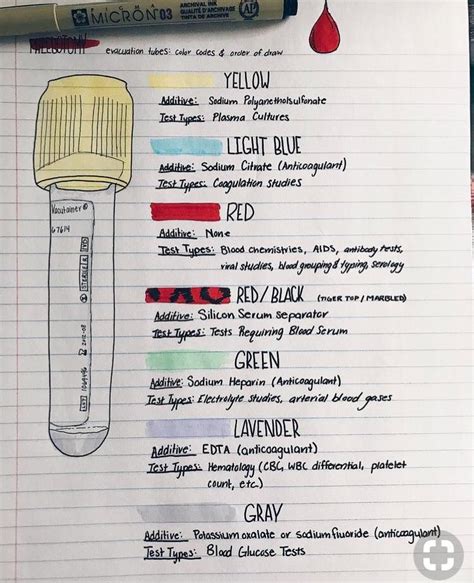 SIGMA
MICRON 03
ARCHIVAL INK
QUALITÉ D'ARCHIVAGE
TINTA DE ARCHIVO
AP
PHLEBOTOMY evacuation tubes: color codes & order of draw
YELLOW
Additive: Sodium Polyanetholsulfonate
Test Types: Plasma Cultures
LIGHT BLUE
Additive: Sodium Citrate (Anticoagulant)
Test Types: Coagulation studies
RED
Additive: None
Test Types: Blood chemistries, AIDS, antibody tests,
viral studies, blood grouping & typing, serology
RED/BLACK (TIGER TOP / MARBLED)
Additive: Silicon Serum separator
Test Types: Tests Requiring Blood Serum
GREEN
Additive: Sodium Heparin (Anticoagulant)
Test Types: Electrolyte studies, arterial blood gases
LAVENDER
Additive: EDTA (anticoagulant)
Test Types: Hematology (CBC, WBC differential, platelet
count, etc.)
GRAY
Additive: Potassium oxalate or sodium fluoride (anticoagulant)
Test Types: Blood Glucose Tests
Vacutainer®
67614
STERILE
2012-08